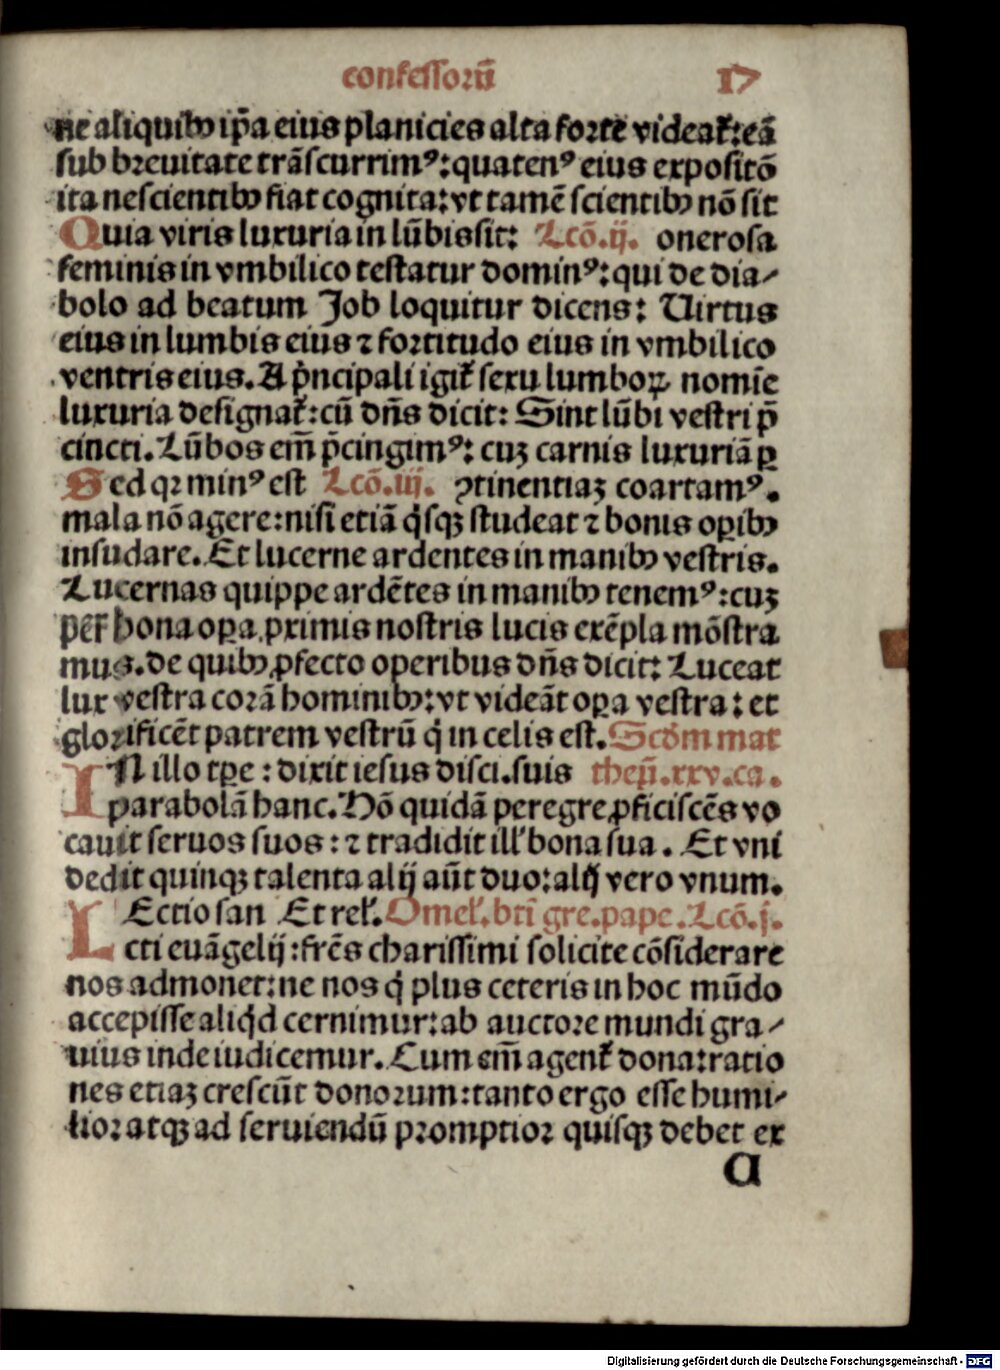 confessorū 17
ne aliquibꝰ ip̄a eius planicies alta forte videat᷑: eā
sub breuitate trāscurrimꝰ: quatenꝰ eius expositō
ita nescientibꝫ fiat cognita: vt tamē scientibꝫ nō sit
Quia viris luxuria in lūbis sit: Lcō.ij. onerosa
feminis in vmbilico testatur dominꝰ: qui de dia-
bolo ad beatum Job loquitur dicens: Uirtus
eius in lumbis eius ⁊ fortitudo eius in vmbilico
ventris eius. A p̍ncipali igit᷑ sexu lumboꝝ nomīe
luxuria designat᷑: cū dn̄s dicit: Sint lūbi vestri p̄
cincti. Lūbos em̄ p̄cingimꝰ: cuꝫ carnis luxuriā ꝑ
Sed qꝛ minꝰ est Lcō.iij. ꝯtinentiaꝫ coartamꝰ.
mala nō agere: nisi etiā q̍sqꝫ studeat ⁊ bonis oꝑibꝫ
insudare. Et lucerne ardentes in manibꝫ vestris.
Lucernas quippe ardētes in manibꝫ tenemꝰ: cuꝫ
per bona oꝑa ꝓximis nostris lucis exēpla mōstra
mus. de quibꝫ ꝓfecto operibus dn̄s dicit: Luceat
lux vestra corā hominibꝫ: vt videāt oꝑa vestra: et
glorificēt patrem vestrū q̍ in celis est. Scd̄m mat
IN illo tꝑe: dixit iesus disci. suis theū. xxv. ca.
parabolā hanc. Hō quidā peregre ꝓficiscēs vo
cauit seruos suos: ⁊ tradidit ill' bona sua. Et vni
dedit quinqꝫ talenta alij aūt duo: alij vero vnum.
LEctio san Et rel'. Omel'. bt̄i gre. pape. Lcō.j.
cti euāgelij: fr̄es charissimi solicite cōsiderare
nos admonet: ne nos q̍ plus ceteris in hoc mūdo
accepisse aliq̍d cernimur: ab auctore mundi gra-
uius inde iudicemur. Cum em̄ agent᷑ dona: ratio
nes etiaꝫ crescūt donorum: tanto ergo esse humi-
lior atqꝫ ad seruiendū promptior quisqꝫ debet ex
a
Digitalisierung gefördert durch die Deutsche Forschungsgemeinschaft - DFG